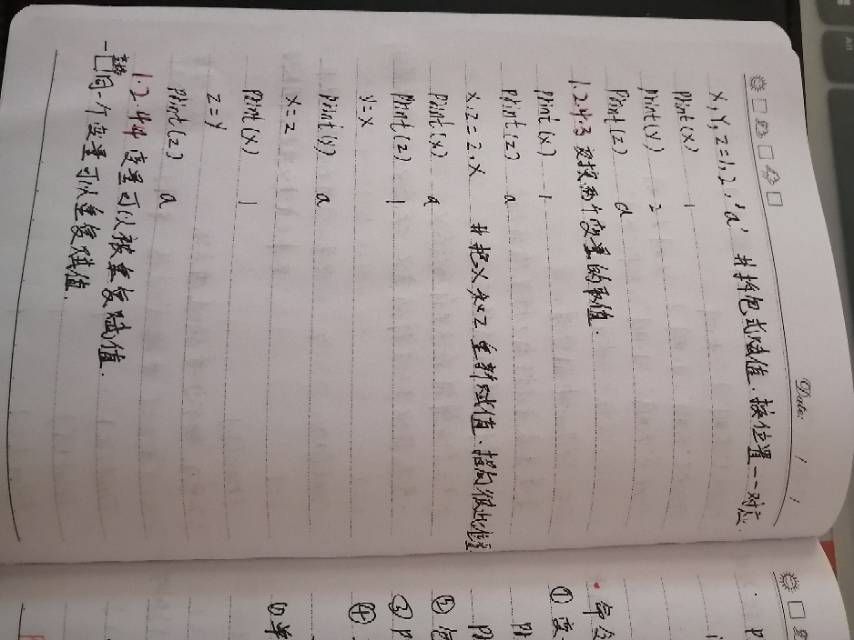 Date: / /
x,y,z=1,2,'a' #拆包式赋值.按位置一一对应.
print(x) 1
print(y) 2
print(z) a
1.2.4.3 交换两个变量的取值.
print(x) 1
print(z) a
x,z=z,x #把x和z重新赋值.指向彼此
print(x) a
print(z) 1
y=x
print(y) a
x=z
print(x) 1
z=y
print(z) a
1.2.4.4 变量可以被重复赋值.
同一个变量可以重复赋值.
① 变
②
③ P
④